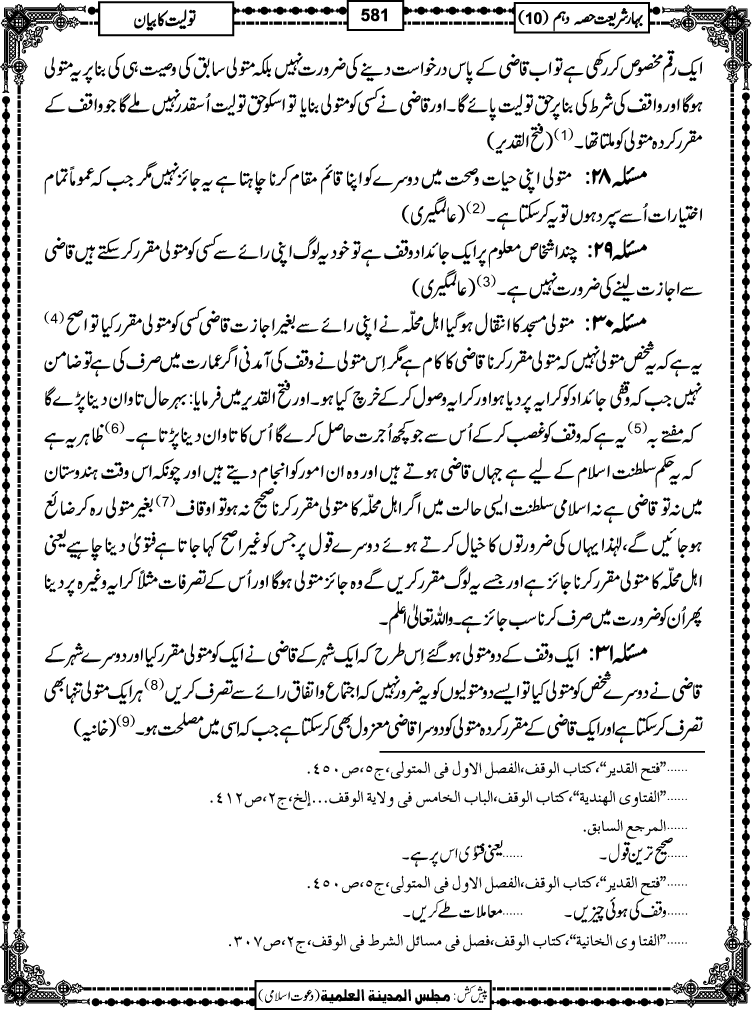 بہارِ شریعت حصہ دہم (10)
581
تولیت کا بیان
ایک رقم مخصوص کررکھی ہے تو اب قاضی کے پاس درخواست دینے کی ضرورت نہیں بلکہ متولی سابق کی وصیت ہی کی بنا پر یہ متولی
ہوگا اور واقف کی شرط کی بنا پر حق تولیت پائے گا۔ اور قاضی نے کسی کو متولی بنایا تو اسکو حق تولیت اُسقدر نہیں ملے گا جو واقف کے
مقرر کردہ متولی کو ملتا تھا۔(1) (فتح القدیر)
مسئلہ ۲۸: متولی اپنی حیات وصحت میں دوسرے کو اپنا قائم مقام کرنا چاہتا ہے یہ جائز نہیں مگر جب کہ عموماً تمام
اختیارات اُسے سپرد ہوں تو یہ کرسکتا ہے۔(2) (عالمگیری)
مسئلہ ۲۹: چند اشخاص معلوم پر ایک جائداد وقف ہے تو خود یہ لوگ اپنی رائے سے کسی کو متولی مقرر کرسکتے ہیں قاضی
سے اجازت لینے کی ضرورت نہیں ہے۔(3) (عالمگیری)
مسئلہ ۳۰: متولی مسجد کا انتقال ہوگیا اہل محلہ نے اپنی رائے سے بغیر اجازت قاضی کسی کو متولی مقرر کیا تو اصح(4)
یہ ہے کہ یہ شخص متولی نہیں کہ متولی مقرر کرنا قاضی کا کام ہے مگر اِس متولی نے وقف کی آمدنی اگر عمارت میں صرف کی ہے تو ضامن
نہیں جب کہ وقفی جائداد کو کرایہ پر دیا ہو اور کرایہ وصول کرکے خرچ کیا ہو۔ اور فتح القدیر میں فرمایا: بہرحال تاوان دینا پڑے گا
کہ مفتے بہ(5) یہ ہے کہ وقف کو غصب کرکے اُس سے جو کچھ اُجرت حاصل کرے گا اُس کا تاوان دینا پڑتا ہے۔(6) ظاہر یہ ہے
کہ یہ حکم سلطنت اسلام کے لیے ہے جہاں قاضی ہوتے ہیں اور وہ ان امور کو انجام دیتے ہیں اور چونکہ اس وقت ہندوستان
میں نہ تو قاضی ہے نہ اسلامی سلطنت ایسی حالت میں اگر اہل محلہ کا متولی مقرر کرنا صحیح نہ ہو تو اوقاف(7) بغیر متولی رہ کر ضائع
ہوجائیں گے، لہٰذا یہاں کی ضرورتوں کا خیال کرتے ہوئے دوسرے قول پر جس کو غیر اصح کہا جاتا ہے فتویٰ دینا چاہیے یعنی
اہل محلہ کا متولی مقرر کرنا جائز ہے اور جسے یہ لوگ مقرر کریں گے وہ جائز متولی ہوگا اور اُس کے تصرفات مثلاً کرایہ وغیرہ پر دینا
پھر اُن کو ضرورت میں صرف کرنا سب جائز ہے۔ واللہ تعالیٰ اعلم۔
مسئلہ ۳۱: ایک وقف کے دو متولی ہوگئے اِس طرح کہ ایک شہر کے قاضی نے ایک کو متولی مقرر کیا اور دوسرے شہر کے
قاضی نے دوسرے شخص کو متولی کیا تو ایسے دو متولیوں کو یہ ضرور نہیں کہ اجتماع و اتفاق رائے سے تصرف کریں(8) ہر ایک متولی تنہا بھی
تصرف کرسکتا ہے اور ایک قاضی کے مقرر کردہ متولی کو دوسرا قاضی معزول بھی کرسکتا ہے جب کہ اسی میں مصلحت ہو۔(9) (خانیہ)
......"فتح القدیر"، کتاب الوقف، الفصل الاول فی المتولی، ج٥، ص٤٥٠.
......"الفتاوی الھندیة"، کتاب الوقف، الباب الخامس فی ولایة الوقف...إلخ، ج٢، ص٤١٢.
......المرجع السابق.
......صحیح ترین قول۔ ......یعنی فتوٰی اس پر ہے۔
......"فتح القدیر"، کتاب الوقف، الفصل الاول فی المتولی، ج٥، ص٤٥٠.
......وقف کی ہوئی چیزیں۔ ......معاملات طے کریں۔
......"الفتاوی الخانیة"، کتاب الوقف، فصل فی مسائل الشرط فی الوقف، ج٢، ص٣٠٧.
پیش کش: مجلس المدینة العلمیة (دعوت اسلامی)